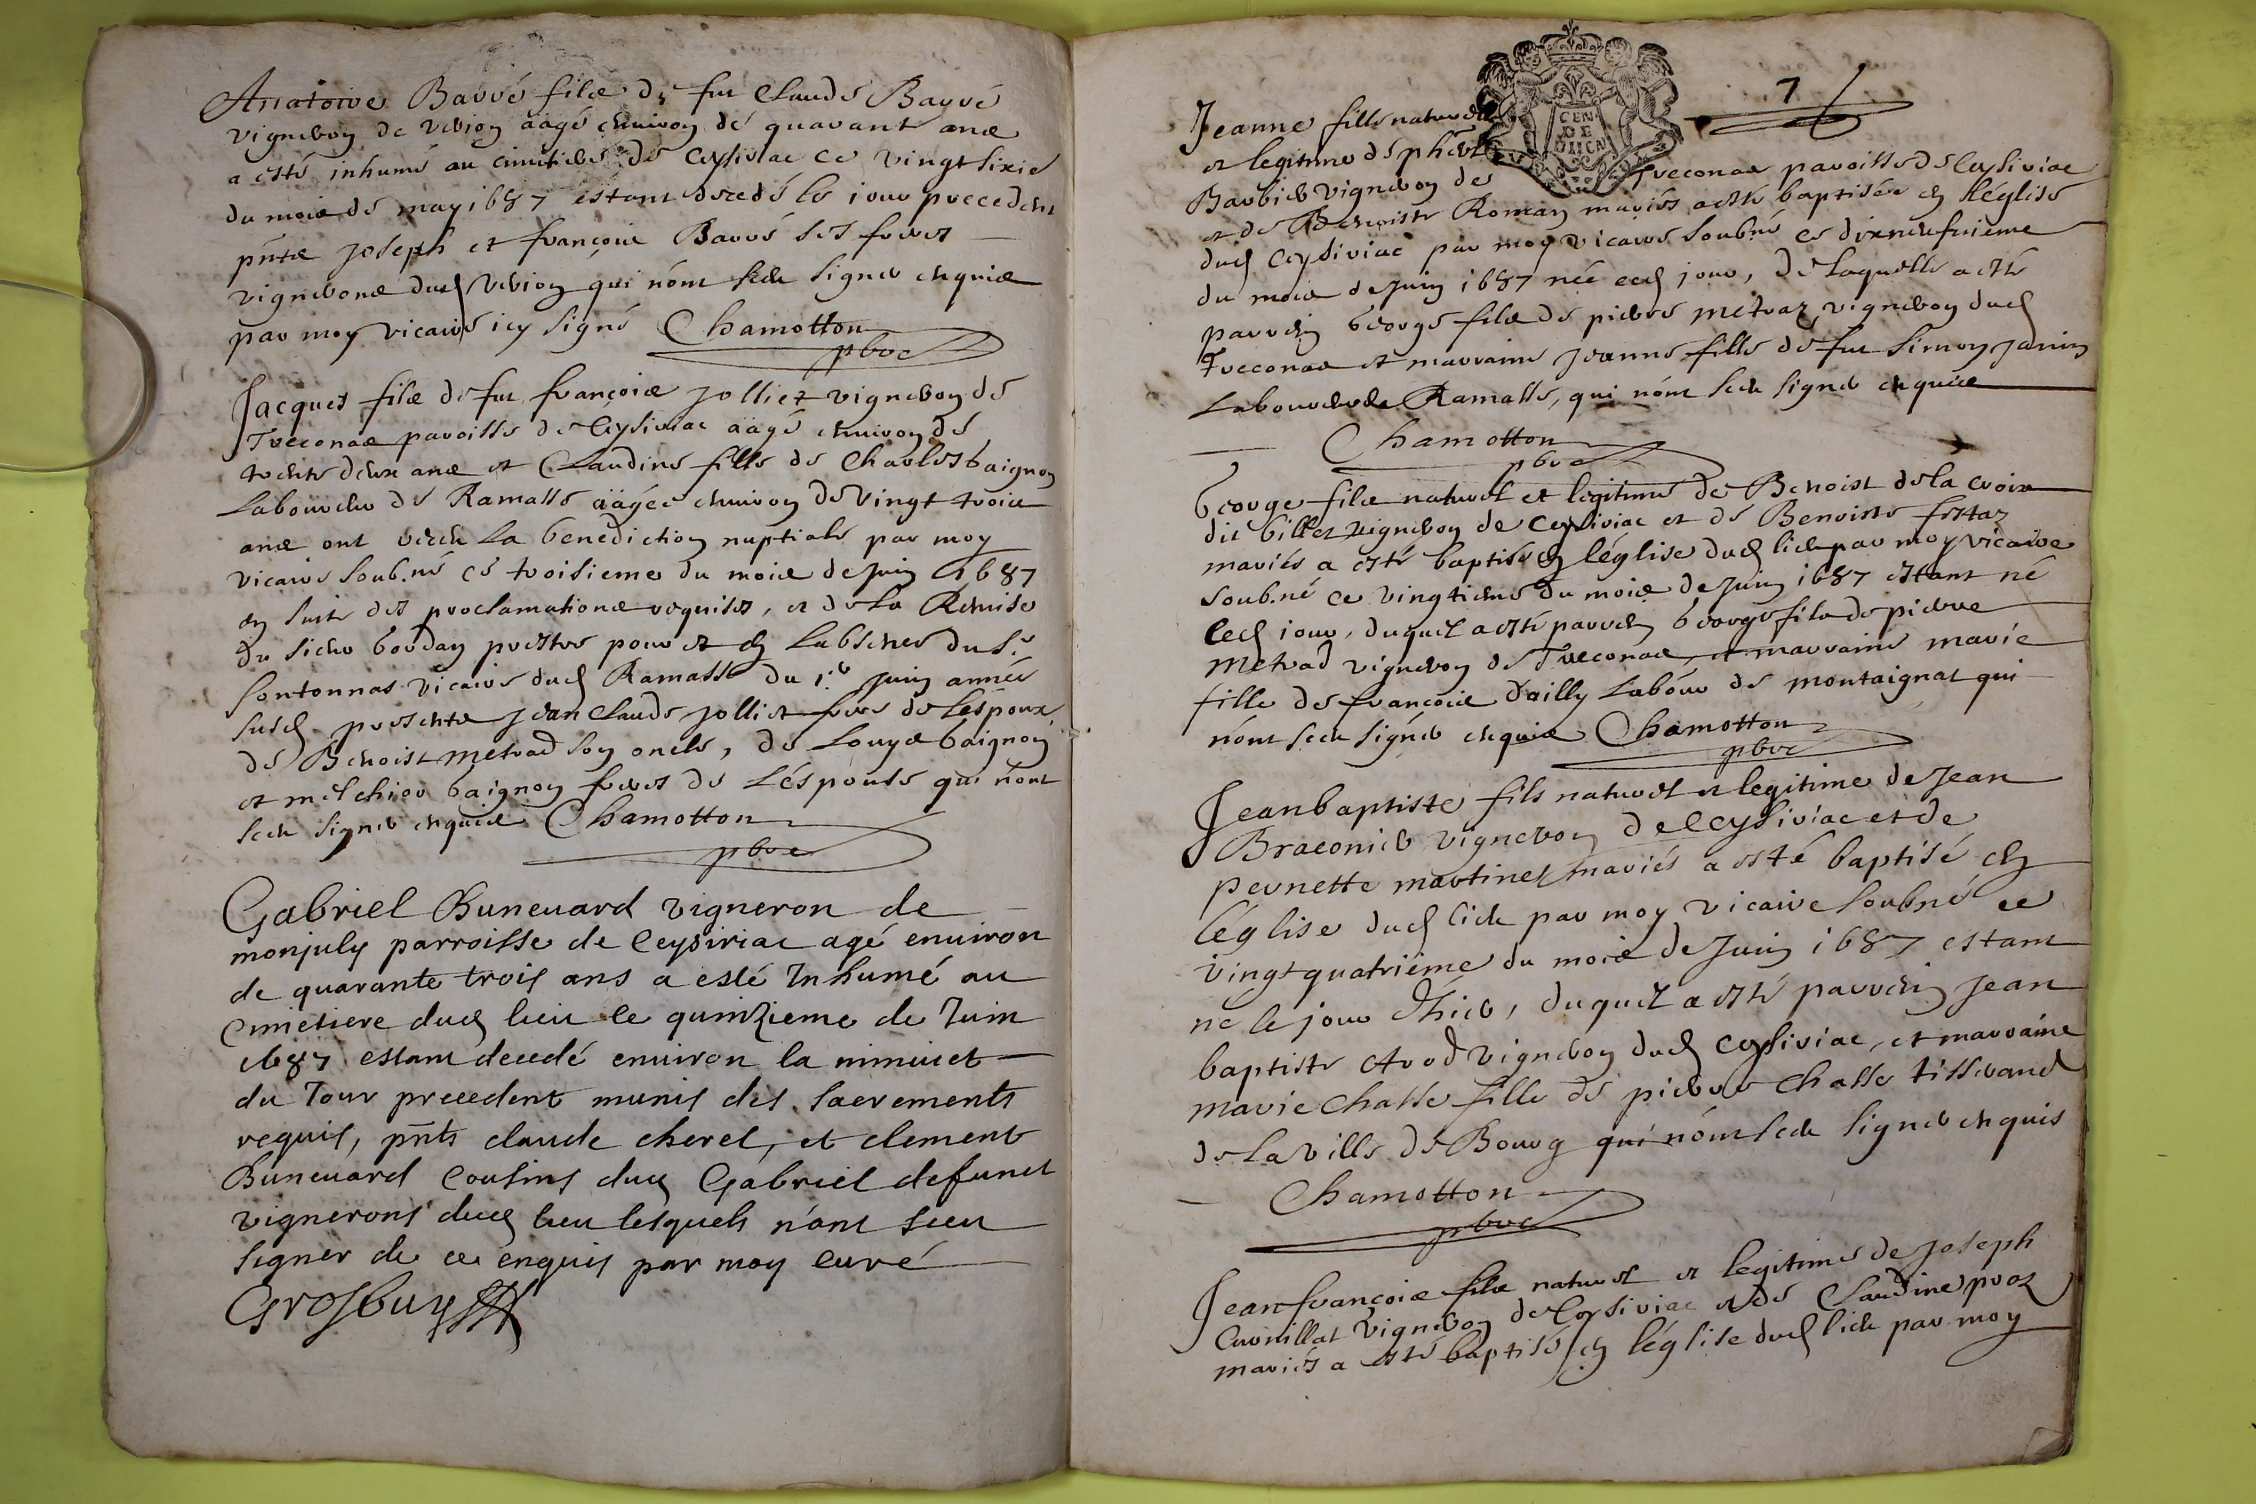 Anatoive Barré filz de fut Claude Barré
vigneron de Revion aagé environ de quarant ans
a esté inhumé au cimetiere de Ceysiriac ce vingt sixie
du mois de may 1687 estant decedé le iour precedent
pnts Joseph et françois Barré ses freres
vignerons dud Revion qui nont sceu signer enquis
par moy vicaire icy signé Chamotton
pbre
Jacques filz de fut françois Jolliet vigneron de
Treconas paroisse de Ceysiriac aagé environ de
trente deux ans et Claudine fille de Charles baignon
Laboureur de Ramasse aagée environ de vingt trois
ans ont receu La benediction nuptiale par moy
vicaire soub.né ce troisieme du mois de Juin 1687
en suite des proclamations requises, et de la Remise
du sieur bordan prestre pour et en Labsence du sr
sontonnas vicaire dud Ramasse du 1er Juin année
susd presents Jean Claude Jolliet frere de Lespoux
de Benoist metrad son oncle, de Louys baignon
et melchior baignon freres de Lespouse qui nont
sceu signer enquis Chamotton
pbre
Gabriel Buneuard vigneron de
monjuly parroisse de Ceysiriac agé enuiron
de quarante trois ans a esté Inhumé au
Cimetiere dud lieu le quinzieme de Iuin
1687 estant decedé enuiron la minuict
du Iour precedent munis des sacrements
requis, pnts claude cheret, et clement
Buneuard cousins dud Gabriel defunct
vignerons dud lieu lesquels n'ont sceu
signer de ce enquis par moy curé
Grosbuy
7
Jeanne fille naturelle
et legitime de
Barbier vigneron de Treconas paroisse de Ceysiriac
et de Benoiste Roman mariés a esté baptisée en Léglise
dud Ceysiriac par moy vicaire soubné ce dixneufuieme
du mois de Juin 1687 née ced jour, de laquelle a esté
parrein George filz de pierre metraz vigneron dud
Treconas et marraine Jeanne fille de fut simon Janin
Laboureur de Ramasse, qui nont sceu signer enquis
Chamotton
pbre
George filz naturel et legitime de Benoist de la croix
dit billet vigneron de Ceysiriac et de Benoiste festaz
mariés a esté baptisé en léglise dud lieu par moy vicaire
soub.né ce vingtieme du mois de Juin 1687 estant né
ced iour, duquel a esté parrein George filz de pierre
metrad vigneron de Treconas, et marraine marie
fille de françois dailly Labour de montaignat qui
nont sceu signer enquis Chamotton
pbre
Jeanbaptiste fils naturel et legitime de Jean
Braconier vigneron de Ceysiriac et de
pernette martinet mariés a esté baptisé en
léglise dud lieu par moy vicaire soubné ce
vingtquatriéme du mois de Juin 1687 estant
né le jour d'hier, duquel a esté parrein Jean
baptiste Arod vigneron dud Ceysiriac, et marraine
marie chasse fille de pierre chasse tisserand
de La ville de Bourg qui nont sceu signer enquis
Chamotton
pbre
Jeanfrançois filz naturel et legitime de Joseph
Curnillat vigneron de Ceysiriac et de Claudine proz
mariés a esté baptisé en léglise dud lieu par moy